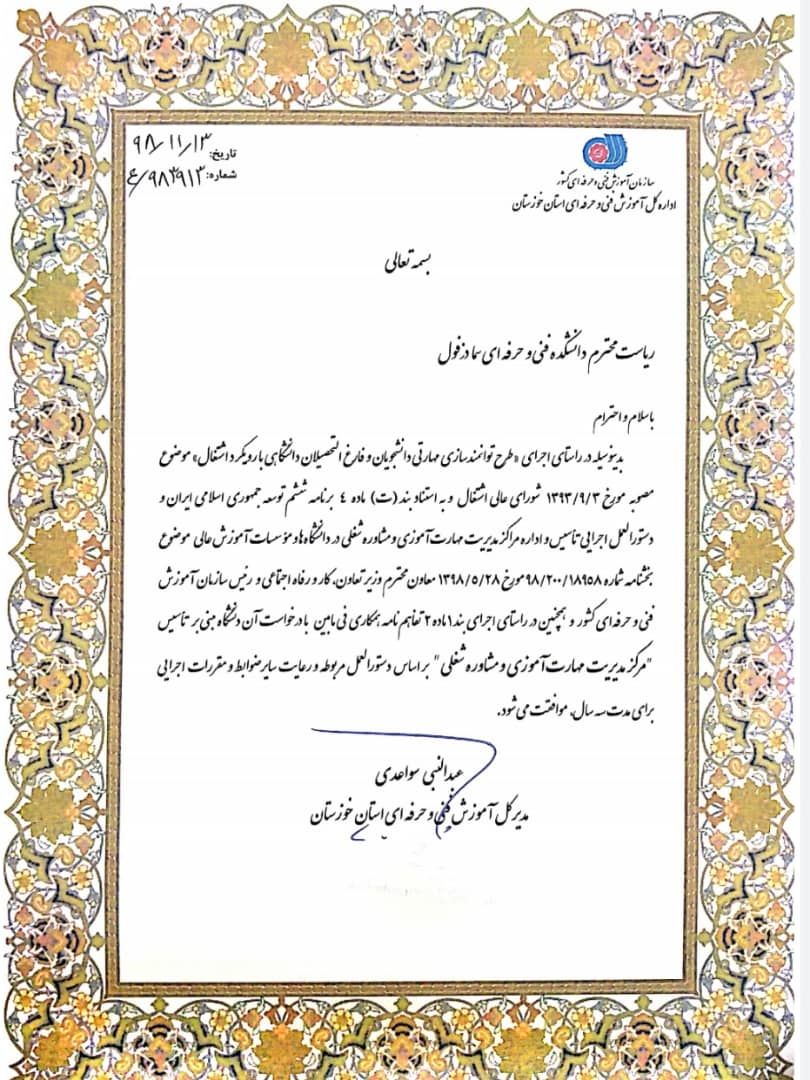 تاریخ: ۹۸/۱۱/۱۳
شماره:
سازمان آموزش فنی و حرفه ای کشور
اداره کل آموزش فنی و حرفه ای استان خوزستان
بسمه تعالی
ریاست محترم دانشکده فنی و حرفه ای سما دزفول
باسلام و احترام
بدینوسیله در راستای اجرای «طرح توانمند سازی مهارتی دانشجویان و فارغ التحصیلان دانشگاهی با رویکرد اشتغال» موضوع
مصوبه مورخ ۱۳۹۳/۹/۳ شورای عالی اشتغال و به استناد بند (ت) ماده ٤ برنامه ششم توسعه جمهوری اسلامی ایران و
دستورالعمل اجرایی تأسیس و اداره مراکز مدیریت مهارت آموزی و مشاوره شغلی در دانشگاه ها و مؤسسات آموزش عالی موضوع
بخشنامه شماره ۹۸/۲۰۰/۱۸۹۵۸ مورخ ۱۳۹۸/۵/۲۸ معاون محترم وزیر تعاون، کار و رفاه اجتماعی و رئیس سازمان آموزش
فنی و حرفه ای کشور و همچنین در راستای اجرای بند ۱ ماده ۲ تفاهم نامه همکاری فی مابین با درخواست آن دانشگاه مبنی بر تأسیس
"مرکز مدیریت مهارت آموزی و مشاوره شغلی" بر اساس دستورالعمل مربوطه و رعایت سایر ضوابط و مقررات اجرایی
برای مدت سه سال، موافقت می شود.
عبدالنبی سواعدی
مدیر کل آموزش فنی و حرفه ای استان خوزستان